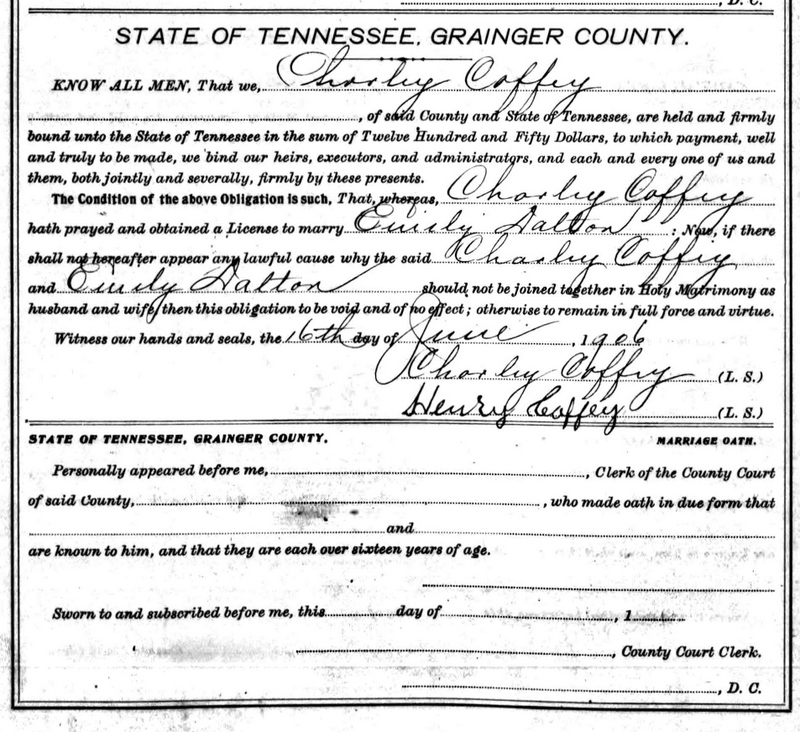 , D. C.
STATE OF TENNESSEE, GRAINGER COUNTY.
KNOW ALL MEN, That we, Charley Coffey
, of said County and State of Tennessee, are held and firmly
bound unto the State of Tennessee in the sum of Twelve Hundred and Fifty Dollars, to which payment, well
and truly to be made, we bind our heirs, executors, and administrators, and each and every one of us and
them, both jointly and severally, firmly by these presents.
The Condition of the above Obligation is such, That, whereas, Charley Coffey
hath prayed and obtained a License to marry Emily Dalton : Now, if there
shall not hereafter appear any lawful cause why the said Charley Coffey
and Emily Dalton should not be joined together in Holy Matrimony as
husband and wife, then this obligation to be void and of no effect; otherwise to remain in full force and virtue.
Witness our hands and seals, the 16th day of June , 1906
Charley Coffey (L. S.)
Henry Coffey (L. S.)
STATE OF TENNESSEE, GRAINGER COUNTY. MARRIAGE OATH.
Personally appeared before me, , Clerk of the County Court
of said County, , who made oath in due form that
and
are known to him, and that they are each over sixteen years of age.
Sworn to and subscribed before me, this day of , 1
, County Court Clerk.
, D. C.